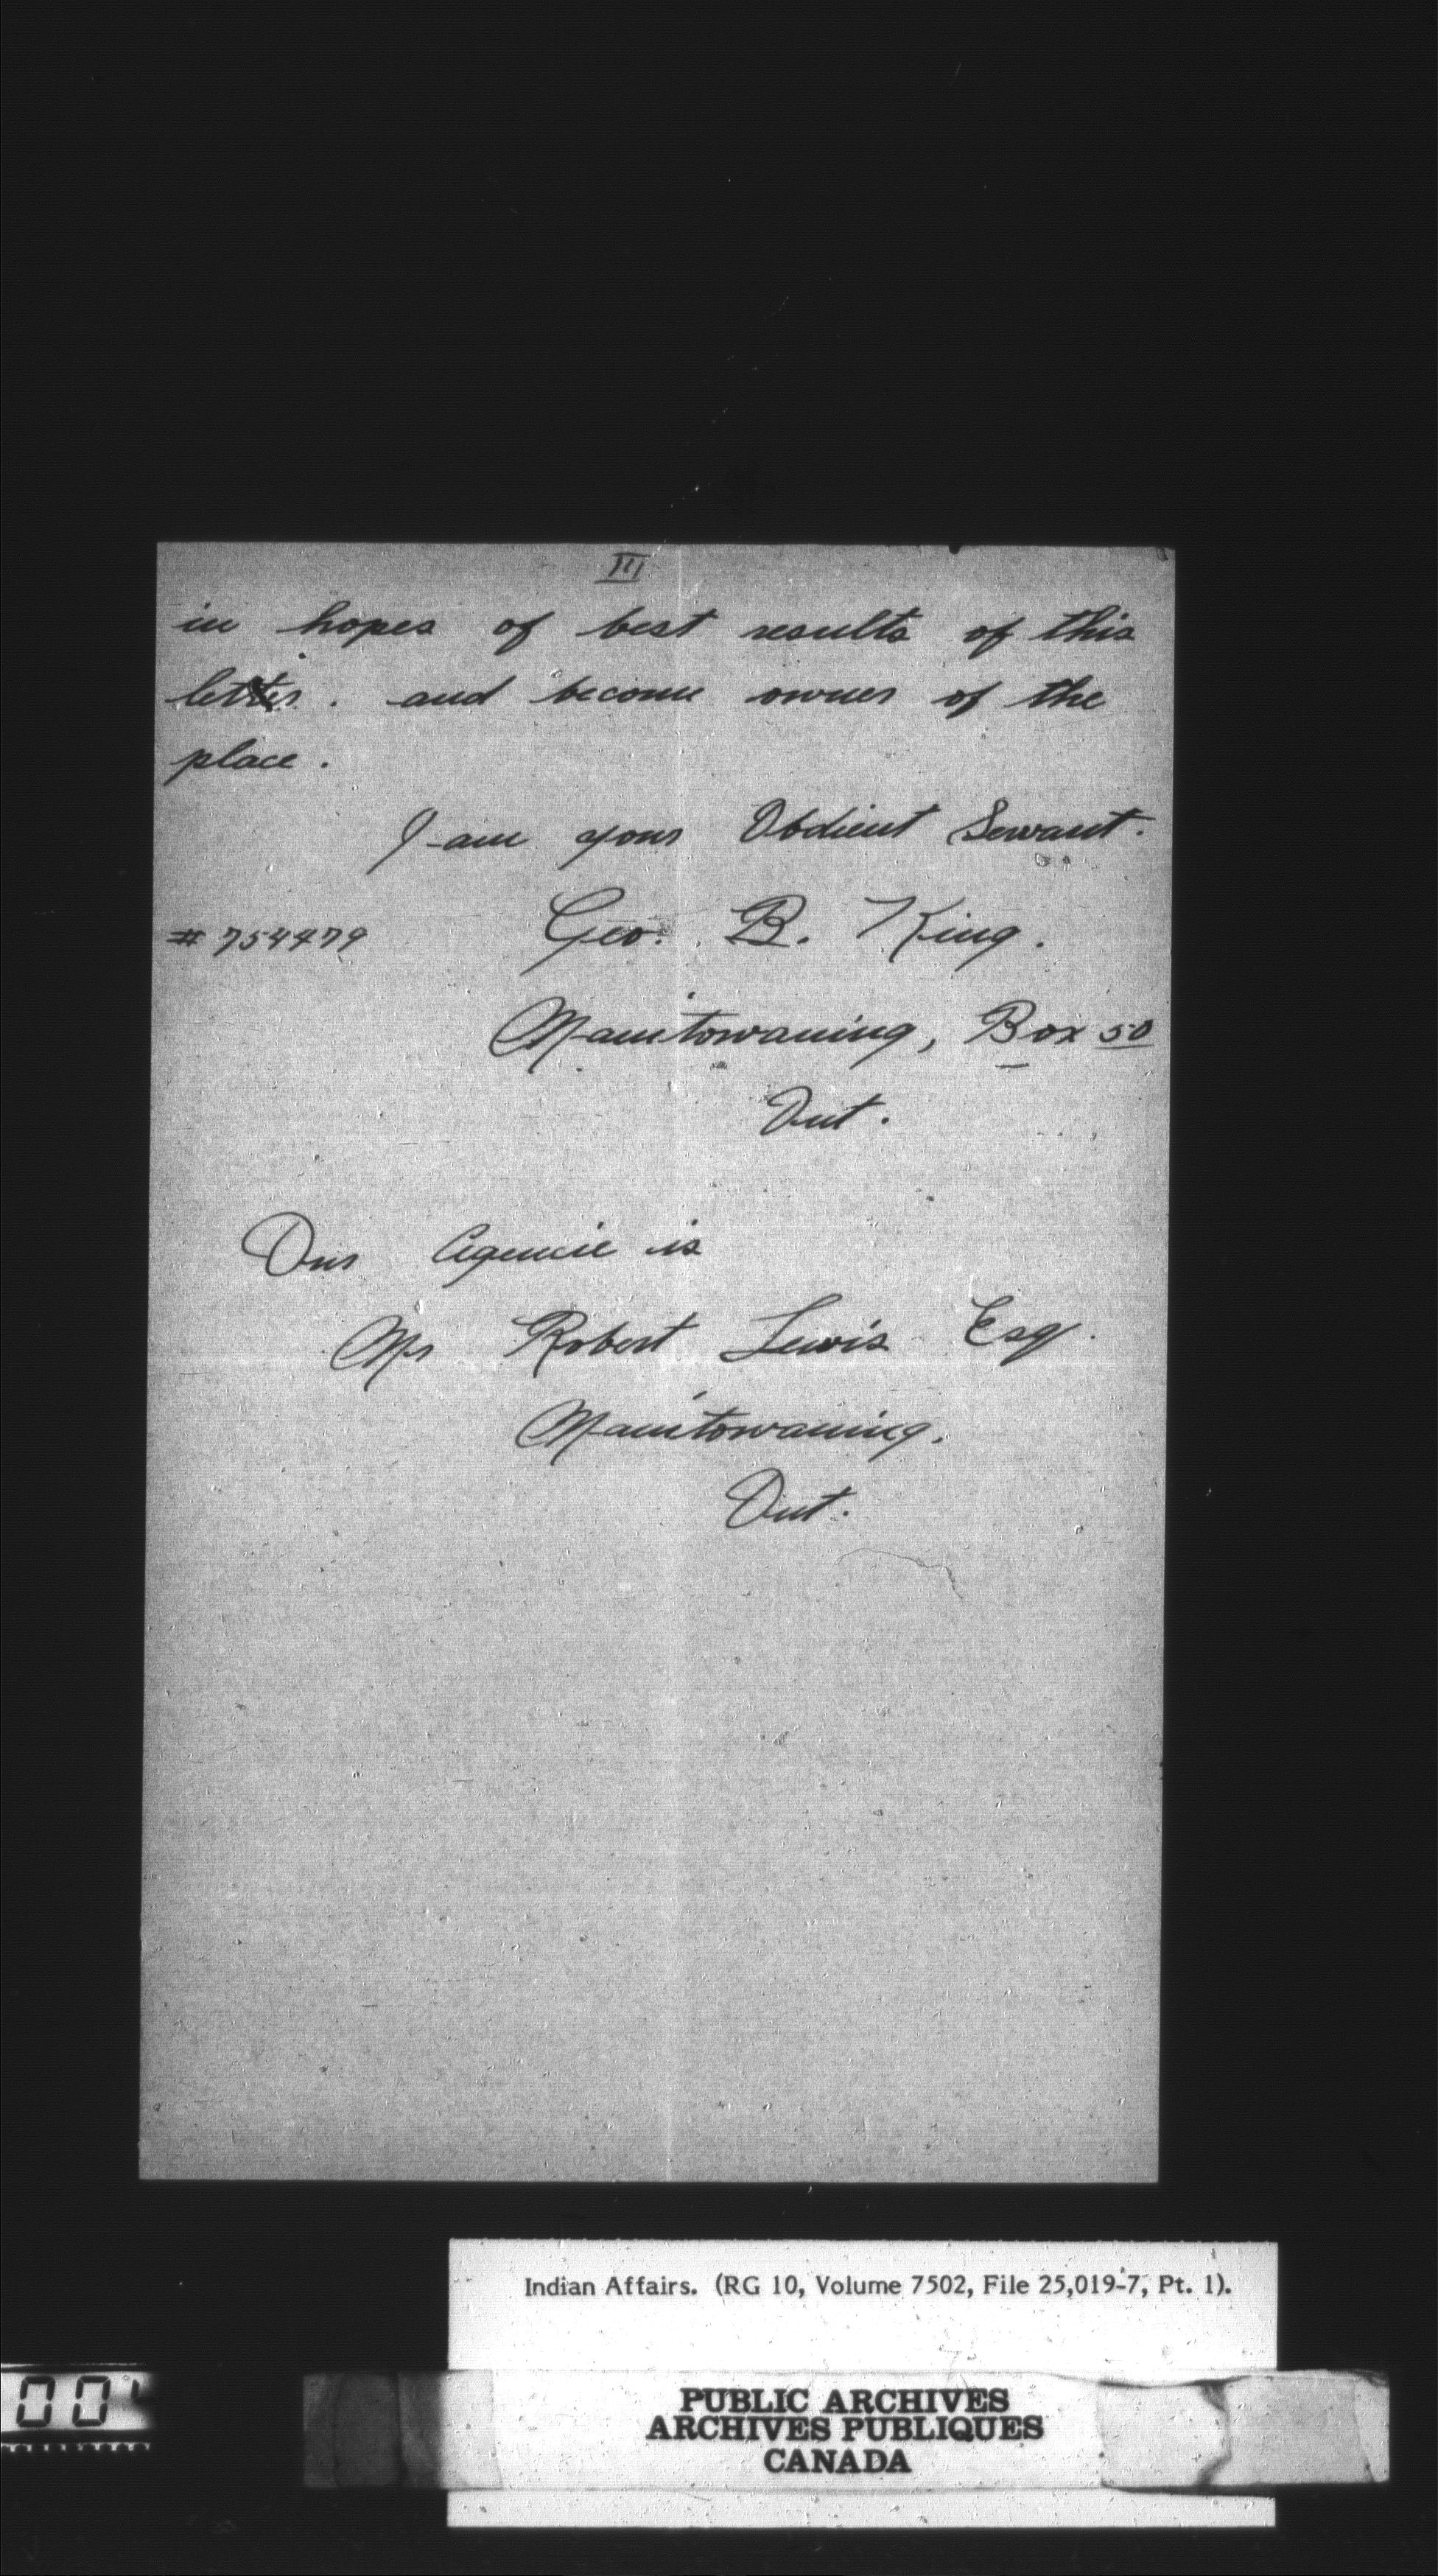 III
in hopes of best results of this
letter. and become owner of the
place.
I am your Obdient Servant.
# 754479
Geo. B. King.
Manitowaning, Box 50
Ont.
Our Agencie is
Mr Robert Lewis Esq.
Manitowaning.
Ont.
Indian Affairs. (RG 10, Volume 7502, File 25,019-7, Pt. 1).
PUBLIC ARCHIVES
ARCHIVES PUBLIQUES
CANADA
00